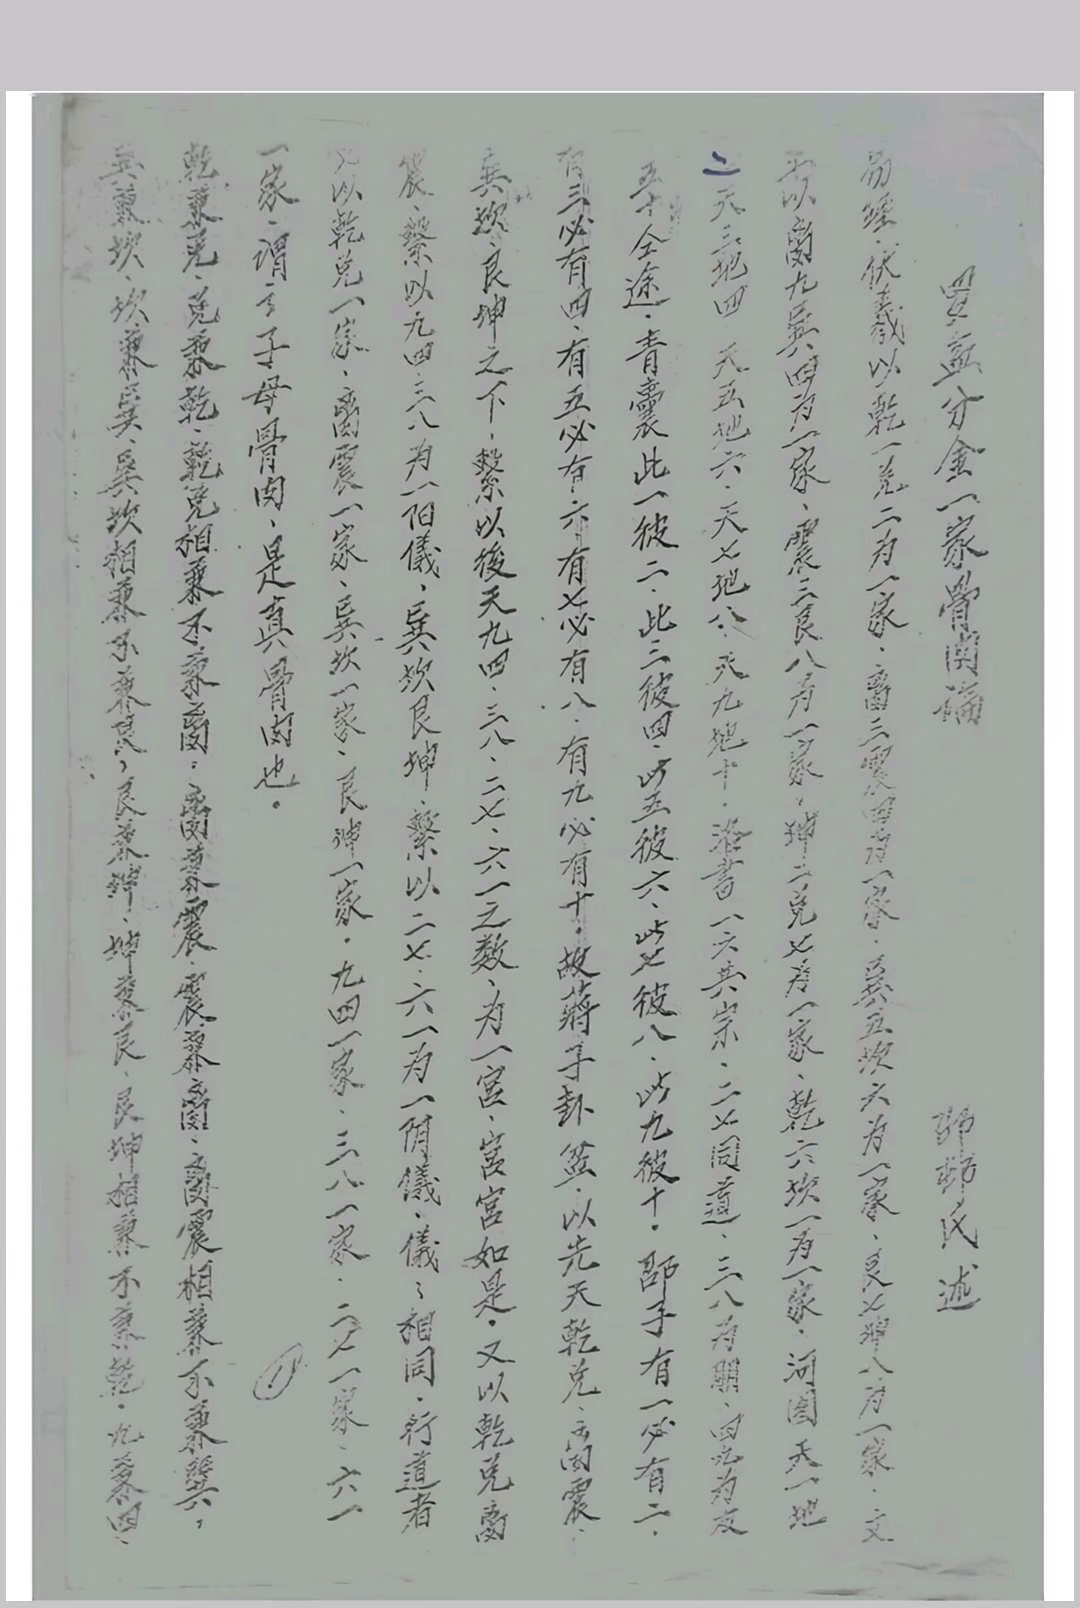 盆分金一家骨肉論
邵邨氏述
易經、伏羲以乾一兑二為一家、离三震四為一家、巽五坎六為一家、艮七坤八為一家、文
王以离九巽四为一家、震三艮八为一家、坤二兑七为一家、乾六坎一为一家、河图天一地
二天三地四、天五地六、天七地八、天九地十、洛書一六共宗、二七同道、三八为朋、四九为友
五十仝途、青囊此一彼二、此三彼四、此五彼六、此七彼八、此九彼十。邵子有一必有二、
有三必有四、有五必有六有七必有八、有九必有十、故蔣子卦盆、以先天乾兑、离震、
巽坎、艮坤之下、繫以後天九四、三八、二七、六一之数、为一宮、宮宮如是。又以乾兑离
震、繫以九四、三八为一阳儀、巽坎艮坤、繫以二七、六一为一阴儀、儀〻相同、行道者
又以乾兑一家、离震一家、巽坎一家、艮坤一家、九四一家、三八一家、二七一家、六一
一家、谓之子母骨肉、是真骨肉也。
乾兼兑、兑兼乾、乾兑相兼不兼离、离兼震、震兼离、离震相兼不兼巽，
巽兼坎、坎兼巽、巽坎相兼不兼艮，艮兼坤、坤兼艮、艮坤相兼不兼乾、九兼四、
①